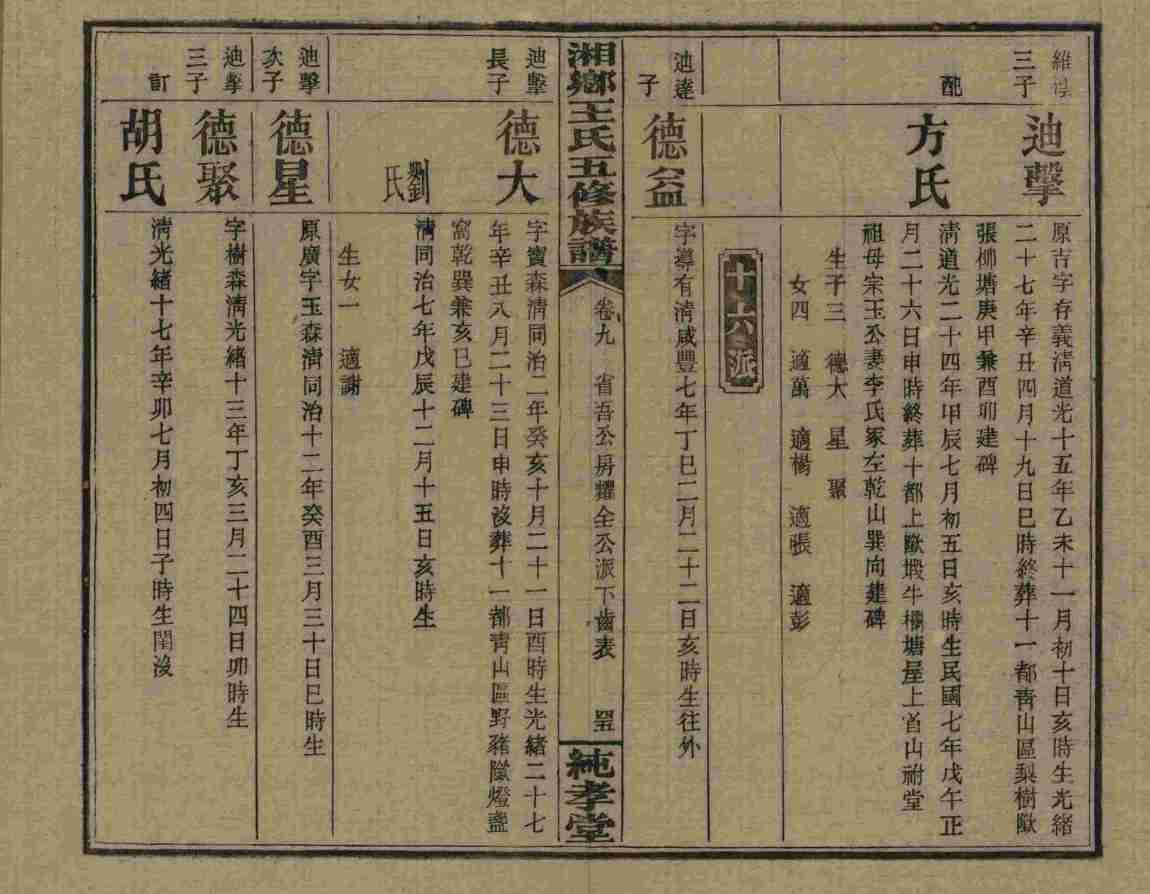 維
三子
迪擊
原吉字存義清道光十五年乙未十一月初十日亥時生光緒
二十七年辛丑四月十九日巳時終葬十一都靑山區梨樹
張柳塘庚甲兼酉卯建碑
配
方氏
清道光二十四年甲辰七月初五日亥時生民國七年戊午正
月二十六日申時終葬十都上塅牛欄塘屋上首山祔堂
祖母宗玉公妻李氏冢左乾山巽向建碑
生子三 德大 星 聚
女四 適萬 適楊 適張 適彭
十六派
迪達
子
德益
字導有清咸豐七年丁巳二月二十二日亥時生往外
湘鄉王氏五修族譜
卷九 省吾公房耀全公派下齒表
純孝堂
迪擊
長子
德大
字寶森清同治二年癸亥十月二十一日酉時生光緒二十七
年辛丑八月二十三日申時沒葬十一都靑山區野豬燈盞
窩乾巽兼亥巳建碑
劉氏
清同治七年戊辰十二月十五日亥時生
生女一 適謝
迪擊
次子
德星
原廣字玉森清同治十二年癸酉三月三十日巳時生
迪擊
三子
德聚
字樹森清光緒十三年丁亥三月二十四日卯時生
訂
胡氏
清光緒十七年辛卯七月初四日子時生閨沒